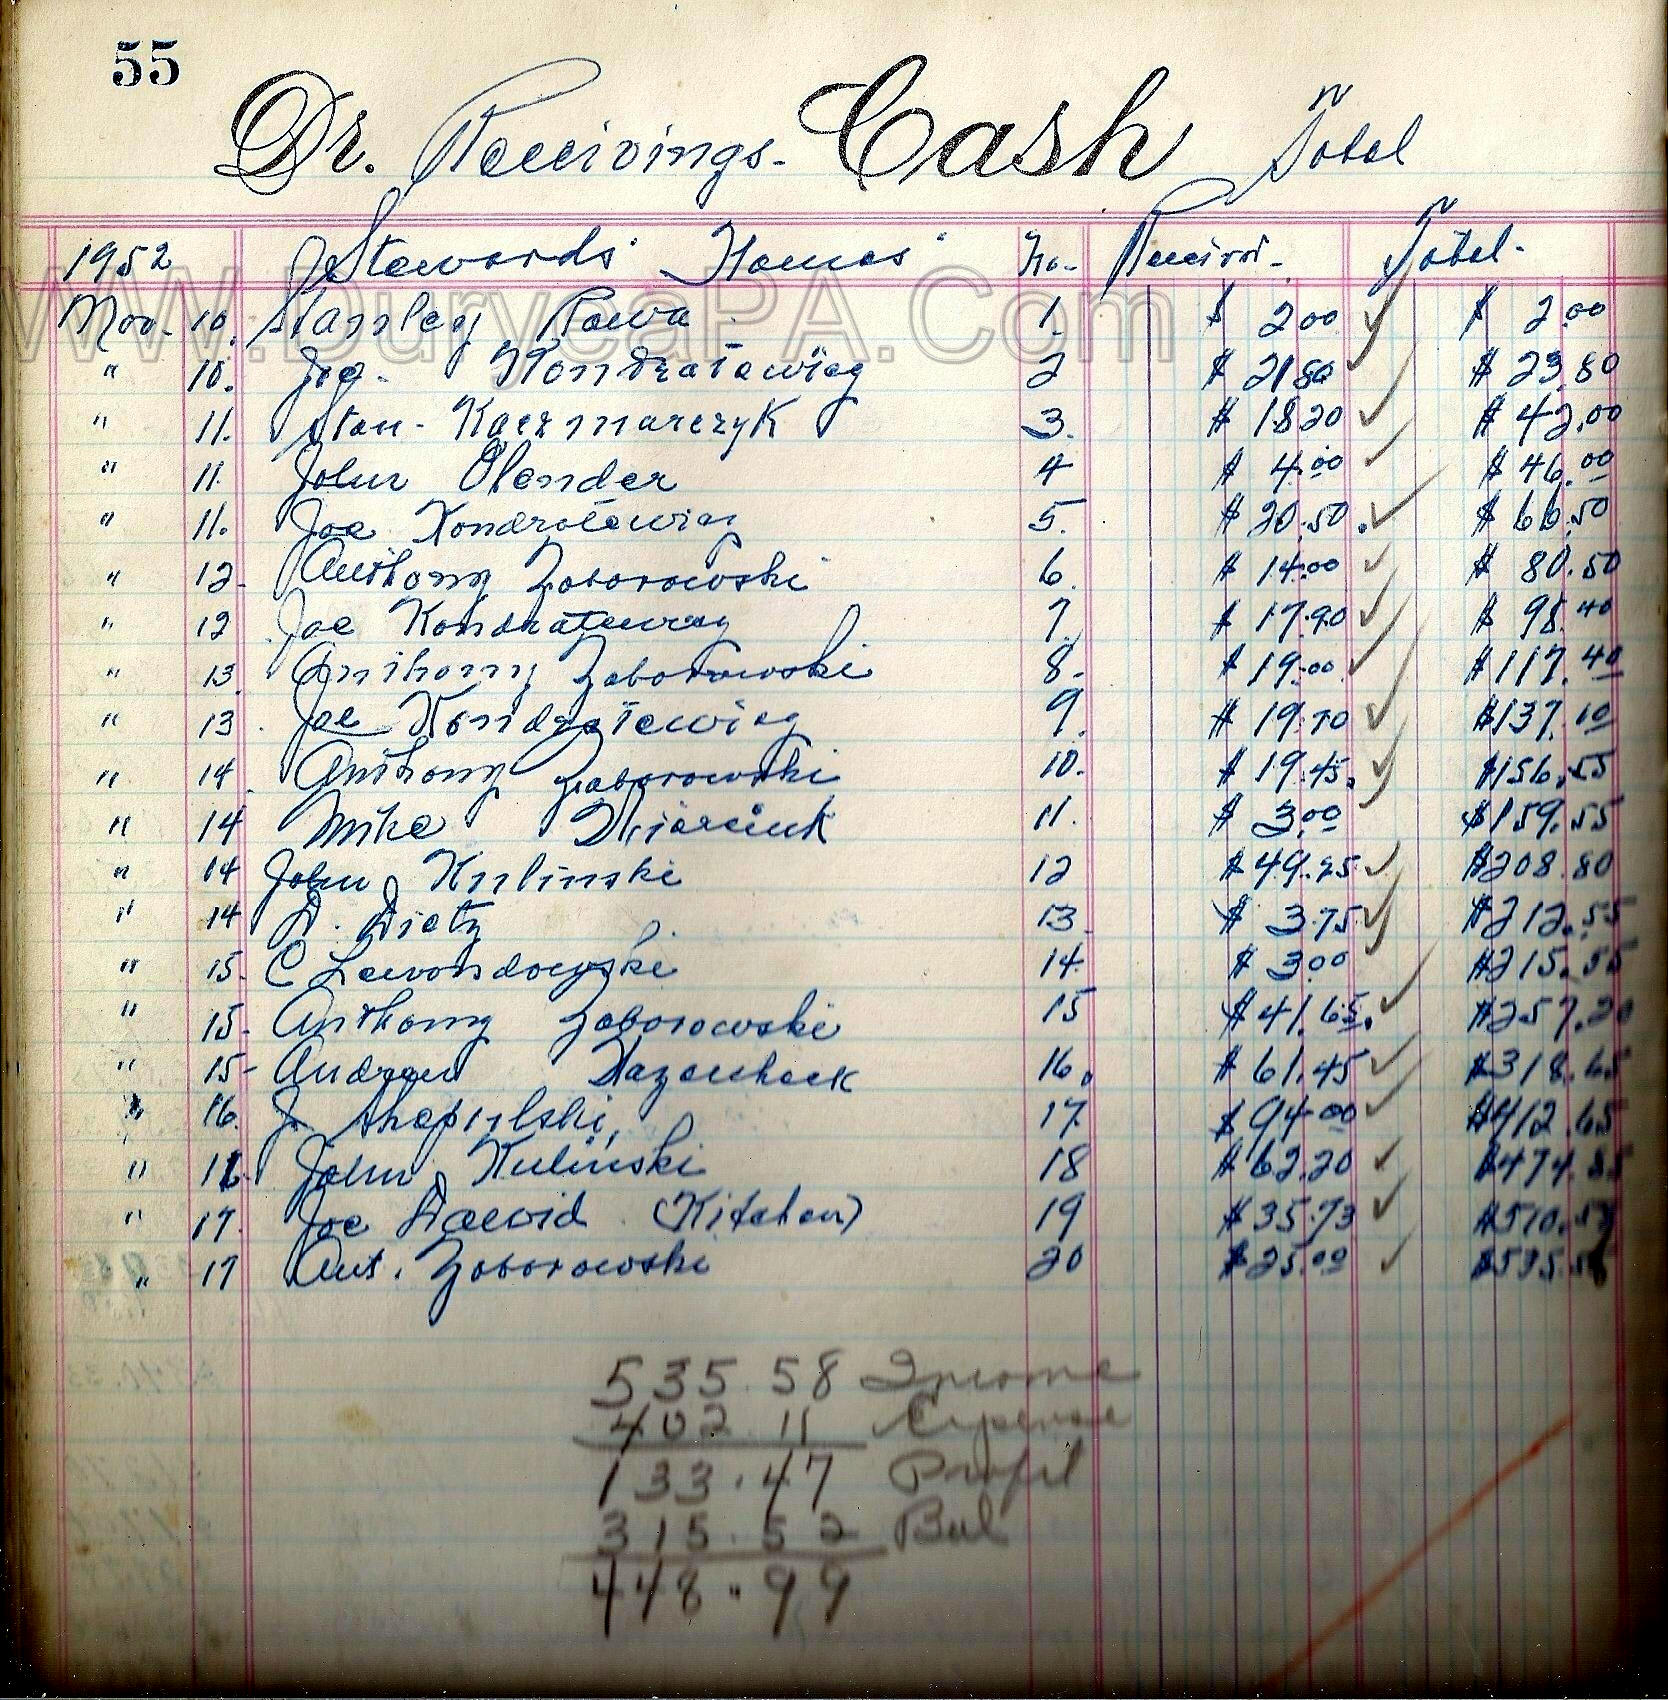 55
Dr. Receivings - Cash Total
1952 Stewards Names No. Receivd. Total
WWW.DuryeaPA.Com
Nov. 10. Stanley Rawa 1. $ 2.00 $ 2.00
" 10. Joe. 2 $ 21.80 $ 23.80
" 11. Stan. Kaczmarczyk 3. $ 18.20 $ 42.00
" 11. John Olender 4 $ 4.00 $ 46.00
" 11. Joe 5. $ 20.50. $ 66.50
" 12. Anthony Zoborowski 6. $ 14.00 $ 80.50
" 12 Joe 7 $ 17.90 $ 98.40
" 13. Anthony Zaborowski 8. $ 19.00 $ 117.40
" 13. Joe 9. $ 19.70 $ 137.10
" 14. Anthony Zaborowski 10. $ 19.45. $ 156.55
" 14 Mike 11. $ 3.00 $ 159.55
" 14 John Kulinski 12 $ 49.25 $ 208.80
" 14 D. Dietz 13. $ 3.75 $ 212.55
" 15. C 14. $ 3.00 $ 215.55
" 15. Anthony Zoborowski 15 $ 41.65. $ 257.20
" 15 - Andrew 16. $ 61.45 $ 318.65
" 16. J. 17. $ 94.00 $ 412.65
" 16. John Kulinski 18 $ 62.20 $ 474.85
" 17. Joe (Kitchen) 19 $ 35.73 $ 510.58
" 17 Ant. Zoborowski 20 $ 25.00 $ 535.58
535.58 Income
402.11 Expense
133.47 Profit
315.52 Bal
448.99